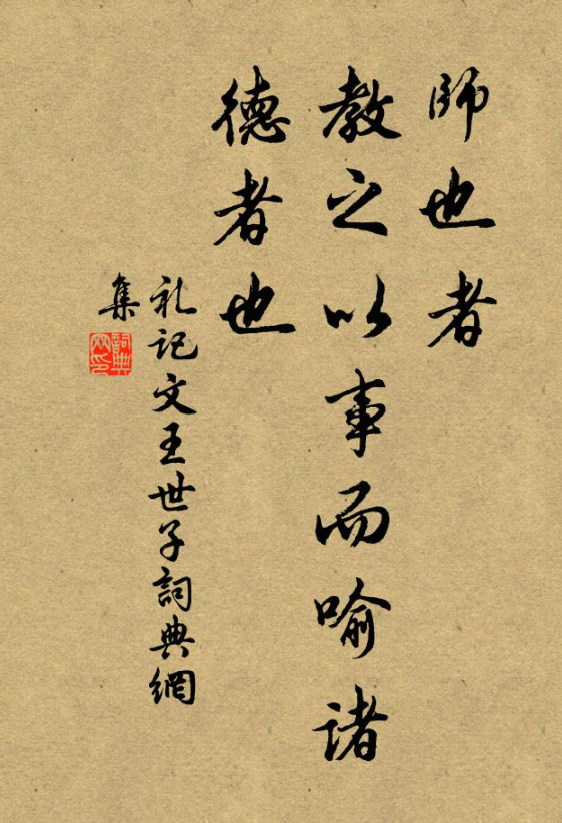 師也者
教之以事而喻諸
德者也
礼记文王世子詞典網
集
詞典
网印